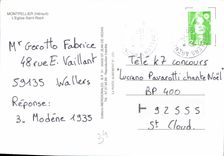 MONTPELLIER (Hérault)
L'Eglise Saint-Roch
Mr Gerotto Fabrice
48 rue E. Vaillant
59135 Wallers
Réponse:
3. Modène 1935
Télé K7 concours
"Luciano Pavarotti chante Noël"
BP 400
92555
St Cloud